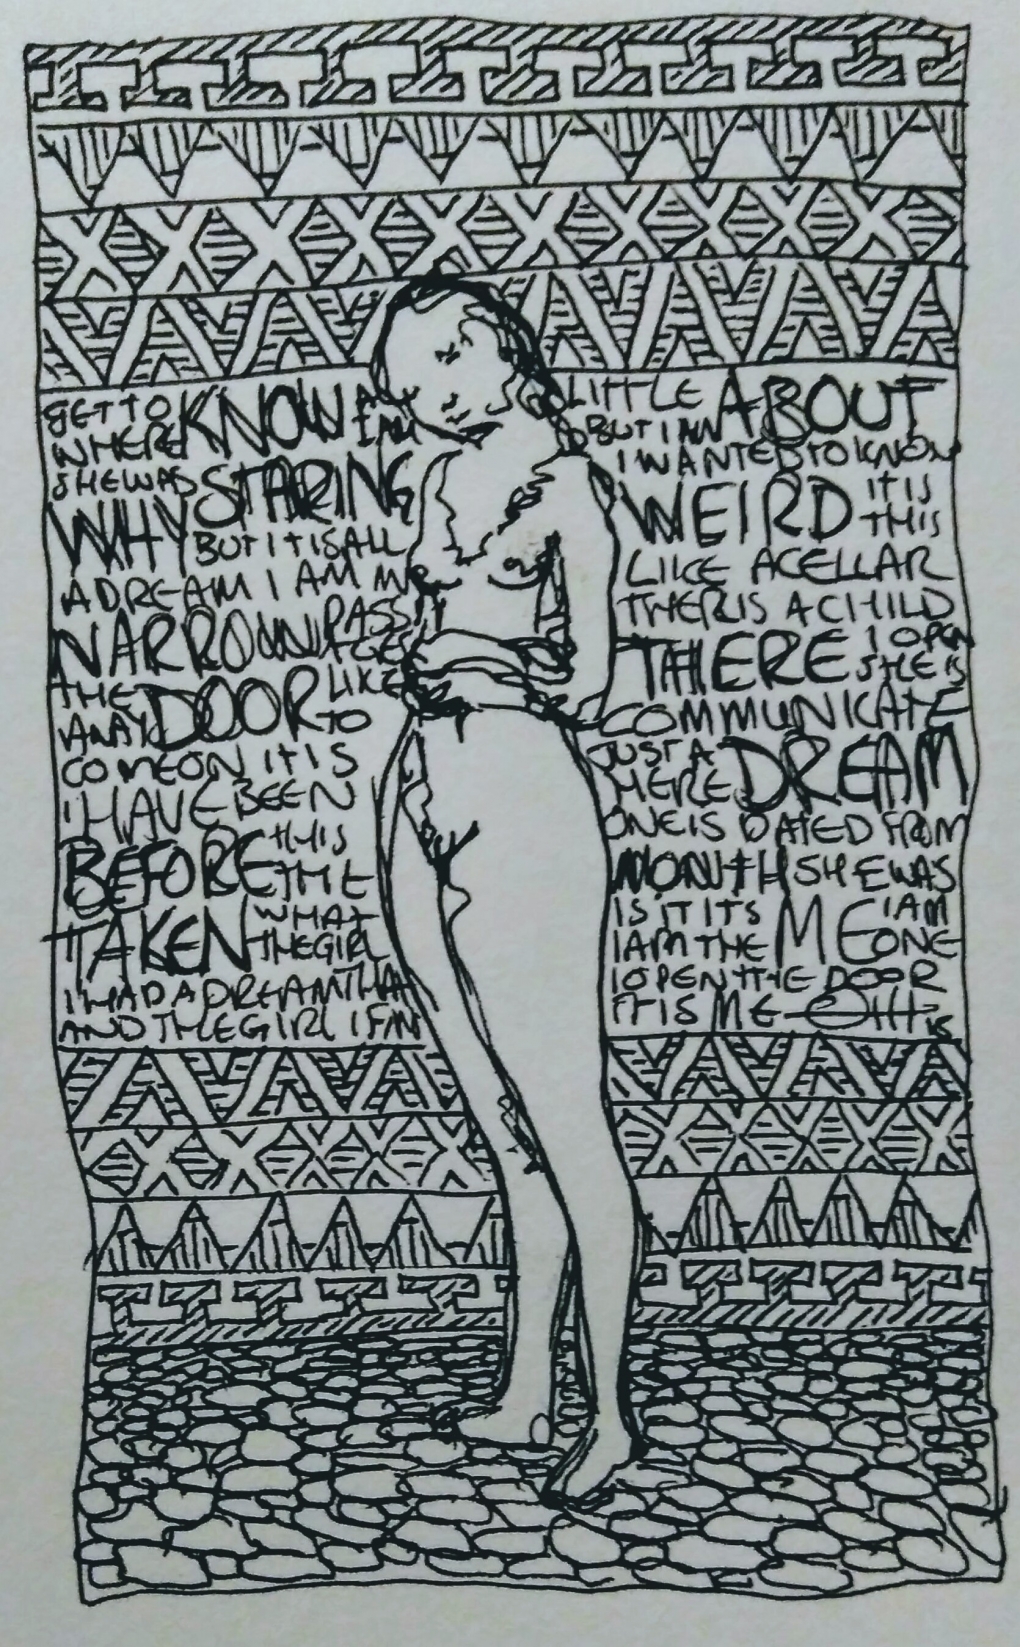 GET TO KNOW A LITTLE ABOUT
WHERE I AM BUT I AM
I WANTED TO KNOW
SHE WAS STARING
WHY WEIRD IT IS
THIS
BUT IT IS ALL LIKE ACELLAR
A DREAM I AM IN THERIS A CHILD
NARROW PASS
AGES THERE I OPEN
SHE IS
THE DOOR LIKE COMMUNICATE
AWAY TO JUST A
COMEON IT IS HERE DREAM
I HAVE BEEN ONE IS DATED FROM
BEFORE THIS MONTH SHE WAS
THE
TAKEN WHAT IS IT ITS ME I AM
THE GIRL I AM THE ONE
I HAD A DREAM THAT I OPEN THE DOOR
AND THE GIRL I FIN IT IS ME
IS